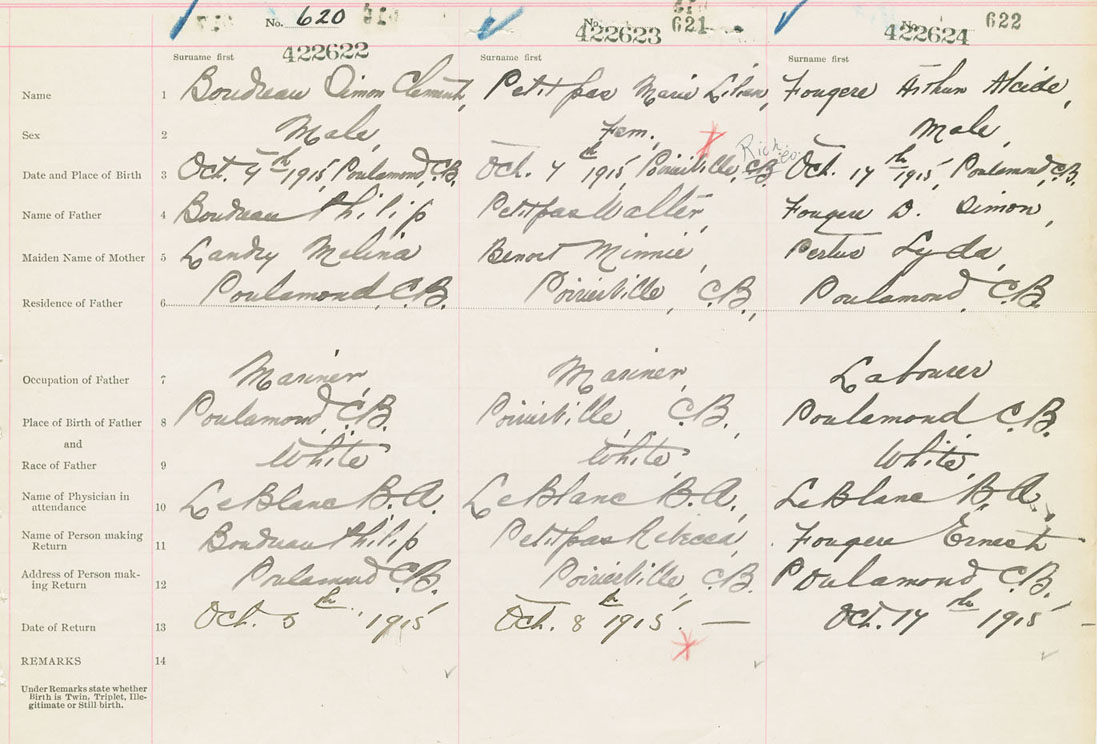 No. 620 No. 621 No. 622
422622 422623 422624
Surname first Surname first Surname first
Name 1 Boudreau Simon Clement, Petitpas Marie Lilian, Fougere Arthur Alcide,
Sex 2 Male, Fem. Male,
Rich. Co.
Date and Place of Birth 3 Oct. 4th 1915, Poulamond, C.B. Oct. 7th 1915, Poirierville, C.B. Oct. 17th 1915, Poulamond, C.B.
Name of Father 4 Boudreau Philip Petitpas Walter, Fougere D. Simon,
Maiden Name of Mother 5 Landry Melina Benoit Minnie, Pertus Lyda,
Residence of Father 6 Poulamond, C.B. Poirierville, C.B., Poulamond, C.B.
Occupation of Father 7 Mariner, Mariner, Labourer
Place of Birth of Father 8 Poulamond, C.B. Poirierville, C.B., Poulamond C.B.
and
Race of Father 9 White White, White,
Name of Physician in
attendance 10 LeBlanc B.A. LeBlanc B.A., LeBlanc B.A.,
Name of Person making
Return 11 Boudreau Philip Petitpas Rebecca, Fougere Ernest
Address of Person mak-
ing Return 12 Poulamond C.B. Poirierville, C.B. Poulamond C.B.
Date of Return 13 Oct. 5th 1915 Oct. 8th 1915. — Oct. 17th 1915 —
REMARKS 14
Under Remarks state whether
Birth is Twin, Triplet, Ille-
gitimate or Still birth.